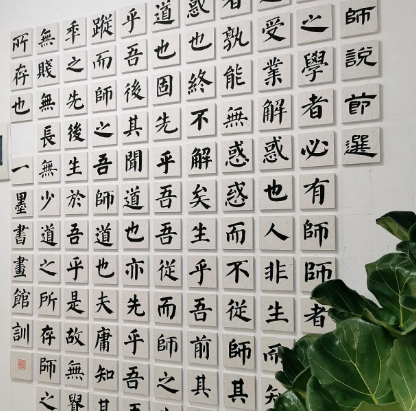 師說節選
之學者必有師師者
受業解惑也人非生而知
孰能無惑惑而不從師其
惑也終不解矣生乎吾前其
道也固先乎吾吾從而師之
乎吾後其聞道也亦先乎吾
蹤而師之吾師道也夫庸知其
秊之先後生於吾乎是故無
無賤無長無少道之所存師之
所存也 一墨書畫館訓